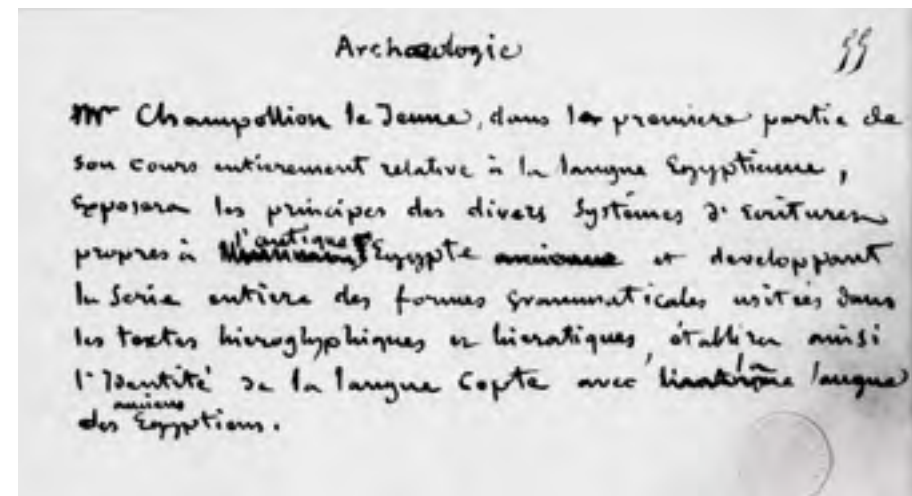 Archæologie
55
Mr Champollion le Jeune, dans la premiere partie de
son cours entierement relative à la langue Egyptienne,
Exposera les principes des divers Systémes d'Ecritures
propres à l'antique Egypte ancienne et developpant
la Serie entiere des formes grammaticales usitées dans
les textes hieroglyphiques et hieratiques, établira ainsi
l'Identité de la langue Copte avec la langue
des anciens Egyptiens.